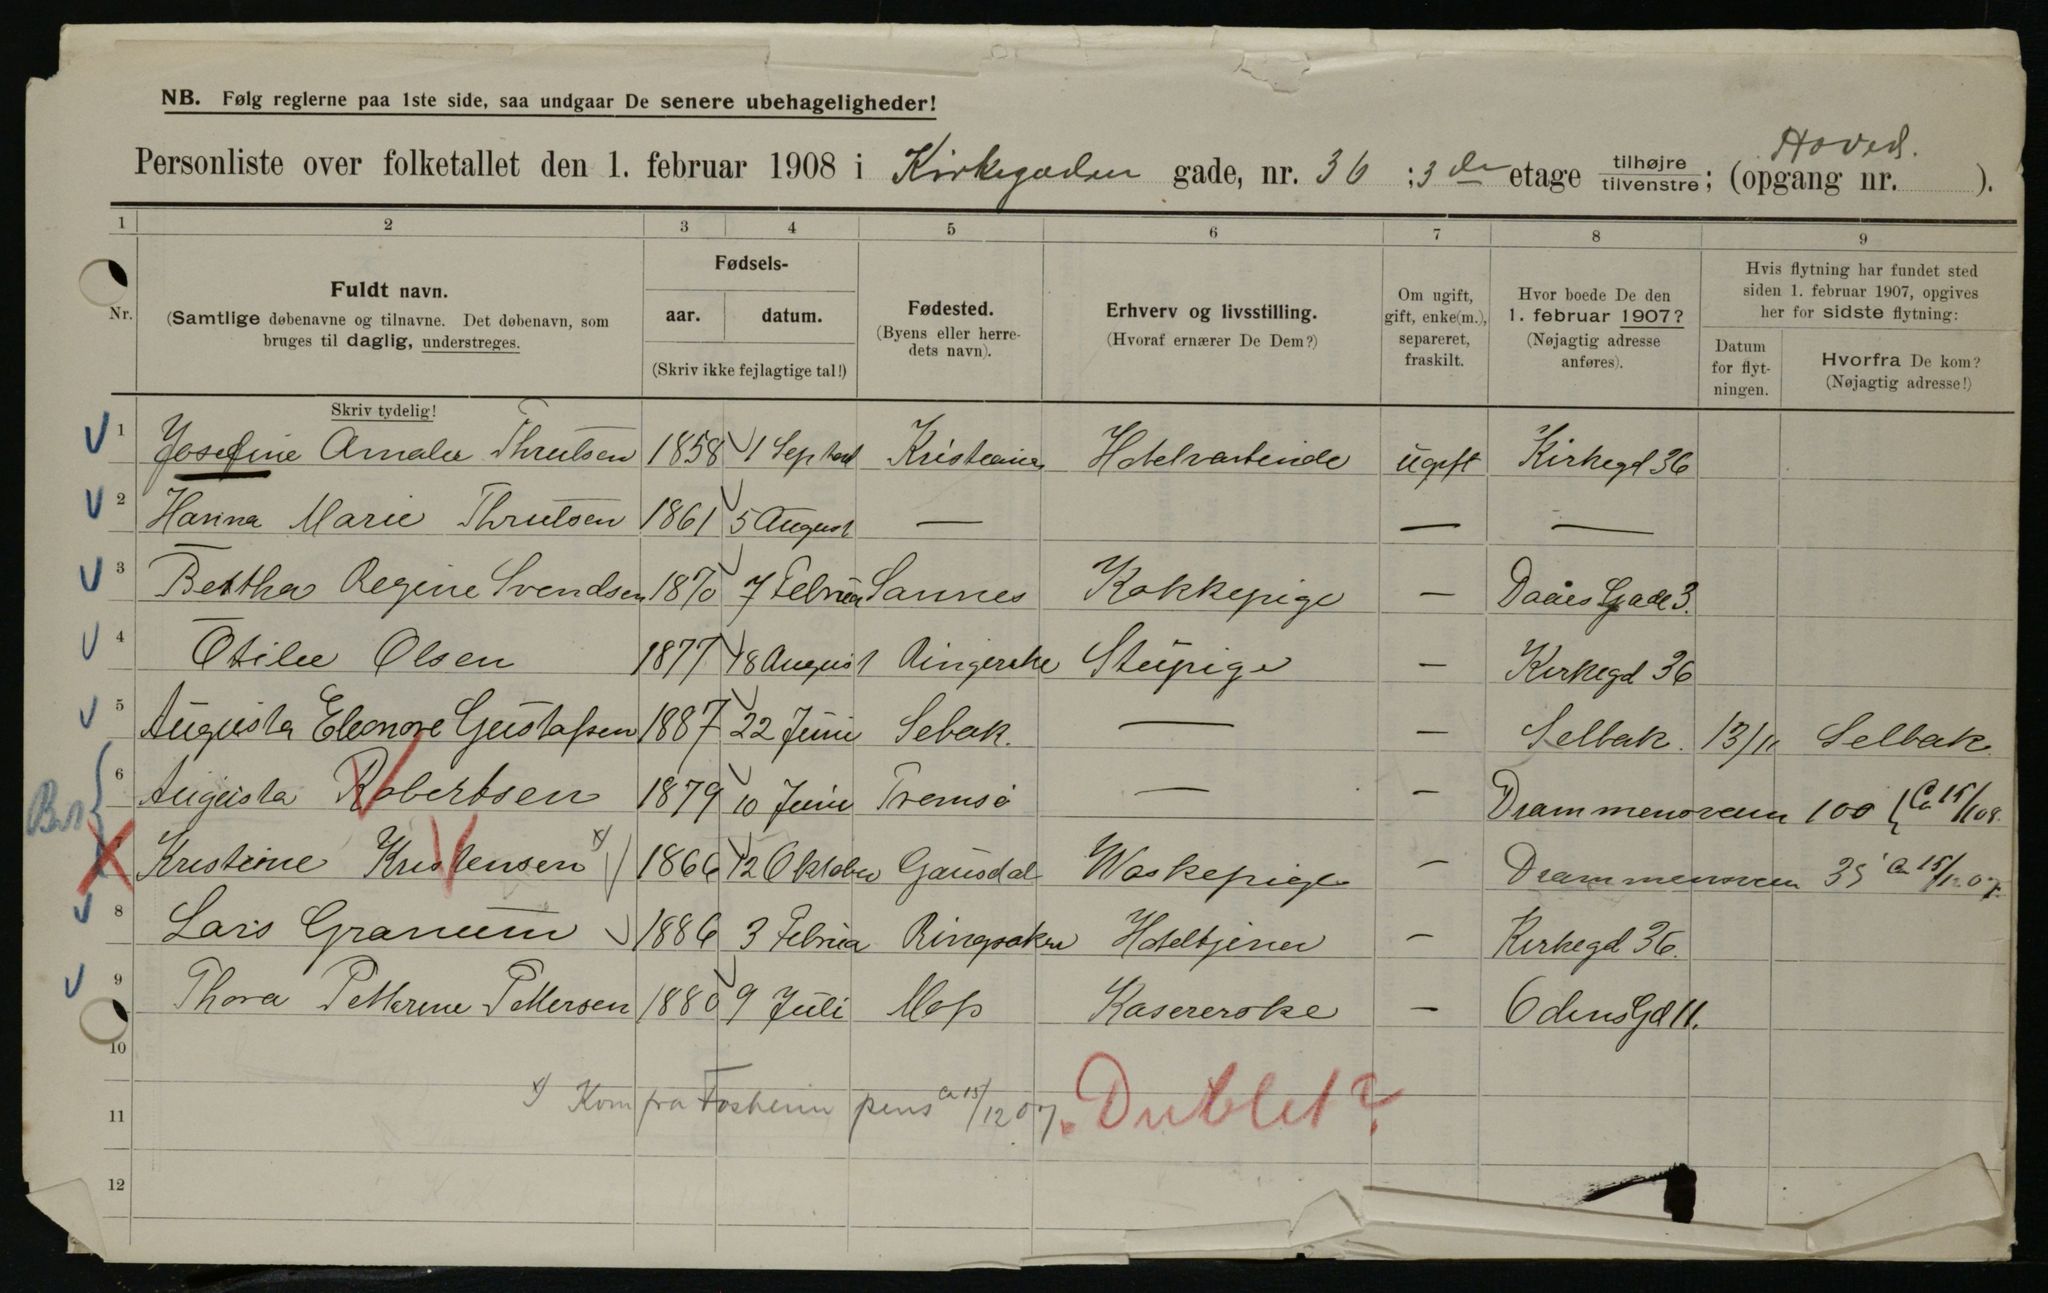 NB. Følg reglerne paa 1ste side, saa undgaar De senere ubehageligheder!
Hoved.
Personliste over folketallet den 1. februar 1908 i Kirkegaden gade, nr. 36 ; 3de etage tilhøjre tilvenstre; (opgang nr. ).
1 2 3 4 5 6 7 8 9
Nr.
Fuldt navn.
(Samtlige døbenavne og tilnavne. Det døbenavn, som
bruges til daglig, understreges.
Skriv tydelig!
Fødsels-
aar. datum.
(Skriv ikke fejlagtige tal!)
Fødested.
(Byens eller herre-
dets navn).
Erhverv og livsstilling.
(Hvoraf ernærer De Dem?)
Om ugift,
gift, enke(m.),
separeret,
fraskilt.
Hvor boede De den
1. februar 1907?
(Nøjagtig adresse
anføres).
Hvis flytning har fundet sted
siden 1. februar 1907, opgives
her for sidste flytning:
Datum
for flyt-
ningen.
Hvorfra De kom?
(Nøjagtig adresse!)
1 Josefine Amalie Thrulsen 1858 1 Septerb Kristiania Hotelvertinde ugift Kirkegd 36
2 Hanna Marie Thrulsen 1861 5 August — — —
3 Bertha Regine Svendsen 1870 7 Februa Sannes Kokkepige — Daaes Gade 3.
4 Otilie Olsen 1877 18 August Ringerike Stupige — Kirkegd 36
5 Augusta Eleonore Gustafsen 1887 22 Juni Sebak. — — Selbak. 13/11 Selbak.
6 Augusta Robertsen 1879 10 Juni Tromsø — — Drammensveien 100 { Ca 15/1 08.
7 Kristine Kristensen x) 1866 12 Oktober Gausdal Waskepige — Drammensveien 35 Ca 15/12 07.
8 Lars Granum 1886 3 Februa Ringsaker Hoteltjener — Kirkegd 36.
9 Thora Petterine Pettersen 1880 9 Juli Moss Kasererske — Odins Gd 11.
10
x) Kom fra Fosheim pens ca 15/12 07. Dublet?
11
12